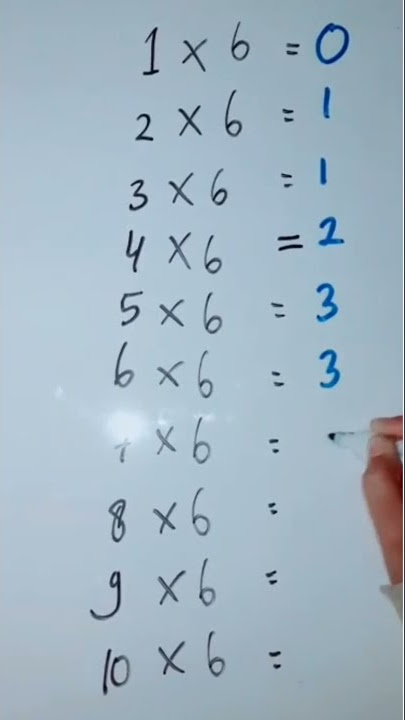 1 × 6 = 0
2 × 6 = 1
3 × 6 = 1
4 × 6 = 2
5 × 6 = 3
6 × 6 = 3
× 6 =
8 × 6 =
9 × 6 =
10 × 6 =